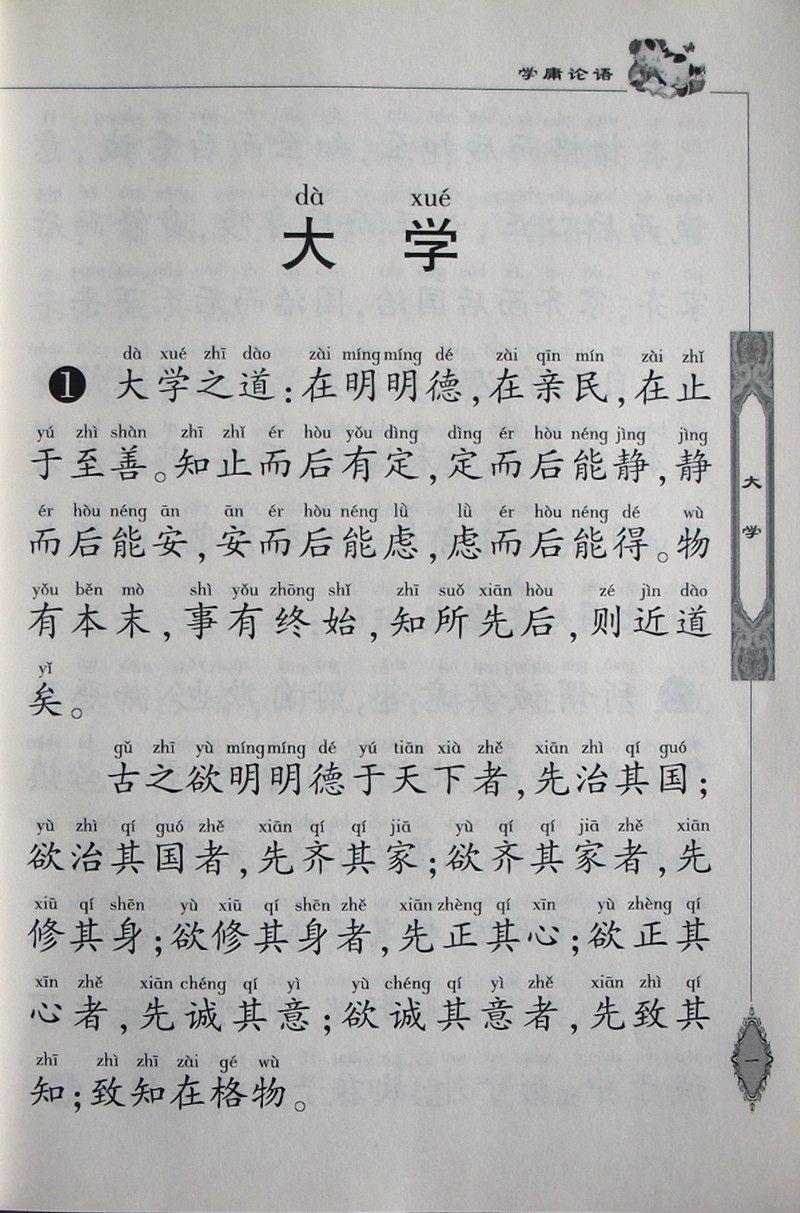 学庸论语
dà xué
大 学
dà xué zhī dào zài míng míng dé zài qīn mín zài zhǐ
❶ 大学之道:在明明德,在亲民,在止
yú zhì shàn zhī zhǐ ér hòu yǒu dìng dìng ér hòu néng jìng jìng
于至善。知止而后有定,定而后能静,静
ér hòu néng ān ān ér hòu néng lǜ lǜ ér hòu néng dé wù
而后能安,安而后能虑,虑而后能得。物
yǒu běn mò shì yǒu zhōng shǐ zhī suǒ xiān hòu zé jìn dào
有本末,事有终始,知所先后,则近道
yǐ
矣。
gǔ zhī yù míng míng dé yú tiān xià zhě xiān zhì qí guó
古之欲明明德于天下者,先治其国;
yù zhì qí guó zhě xiān qí qí jiā yù qí qí jiā zhě xiān
欲治其国者,先齐其家;欲齐其家者,先
xiū qí shēn yù xiū qí shēn zhě xiān zhèng qí xīn yù zhèng qí
修其身;欲修其身者,先正其心;欲正其
xīn zhě xiān chéng qí yì yù chéng qí yì zhě xiān zhì qí
心者,先诚其意;欲诚其意者,先致其
zhī zhì zhī zài gé wù
知;致知在格物。
大学
一